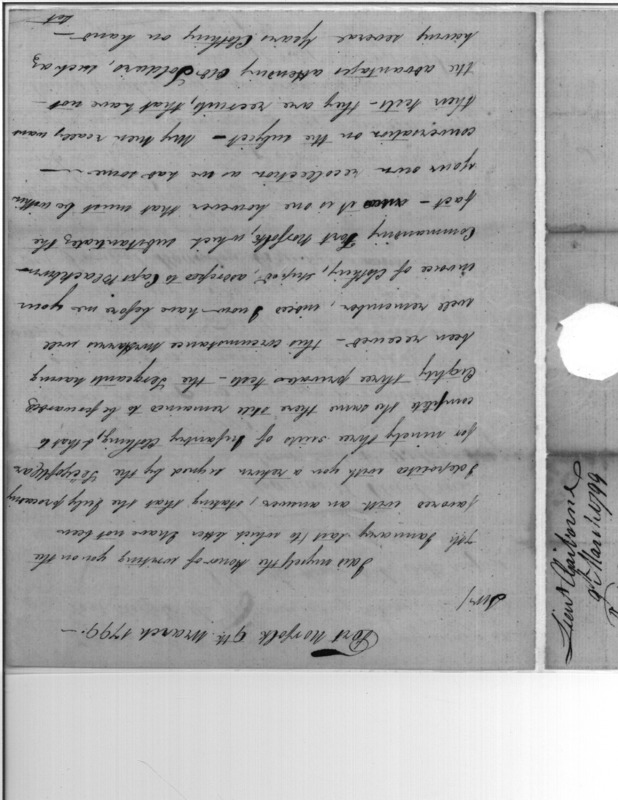 Fort Norfolk 9th. March 1799.—
Sir/
I did myself the Honor of writing you on the
7th January last (to which letter I have not been
favored with an answer, stating that the July preceding
I deposited with you a return signed by the Secy of War
for ninety three suits of Infantry Clothing, & that to
complete the same there still remained to be forwarded
Eighty three privates suits - the Sergeants having
been received - this circumstance Mr Harris will
well remember, indeed I now have before me your
invoice of Clothing, shipped, addressed to Capt Blackburn
Commanding Fort Norfolk, which substantiates the
fact - it is one however that must be within
your own recollection as we had some
conversation on the subject - My Men really want
their suits - they are recruits, that have not
the advantages attending old Soldiers, such as
having several Years Clothing on hand —
Lieut Claiborne
9th March 1799